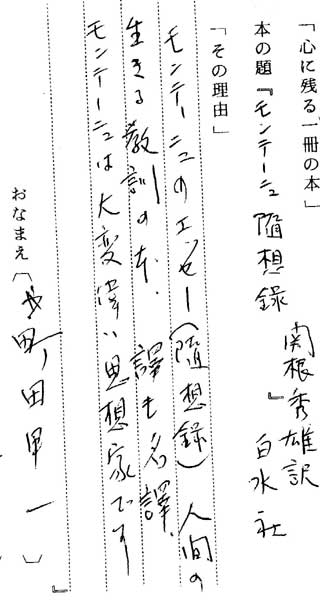 「心に残る一冊の本」
本の題『モンテーニュ隨想録』関根秀雄訳 白水社
「その理由」
モンテーニュのエッセー(隨想録)人間の
生きる教訓の本.譯も名譯.
モンテーニュは大変偉い思想家です
おなまえ〔 田甲一 〕
』